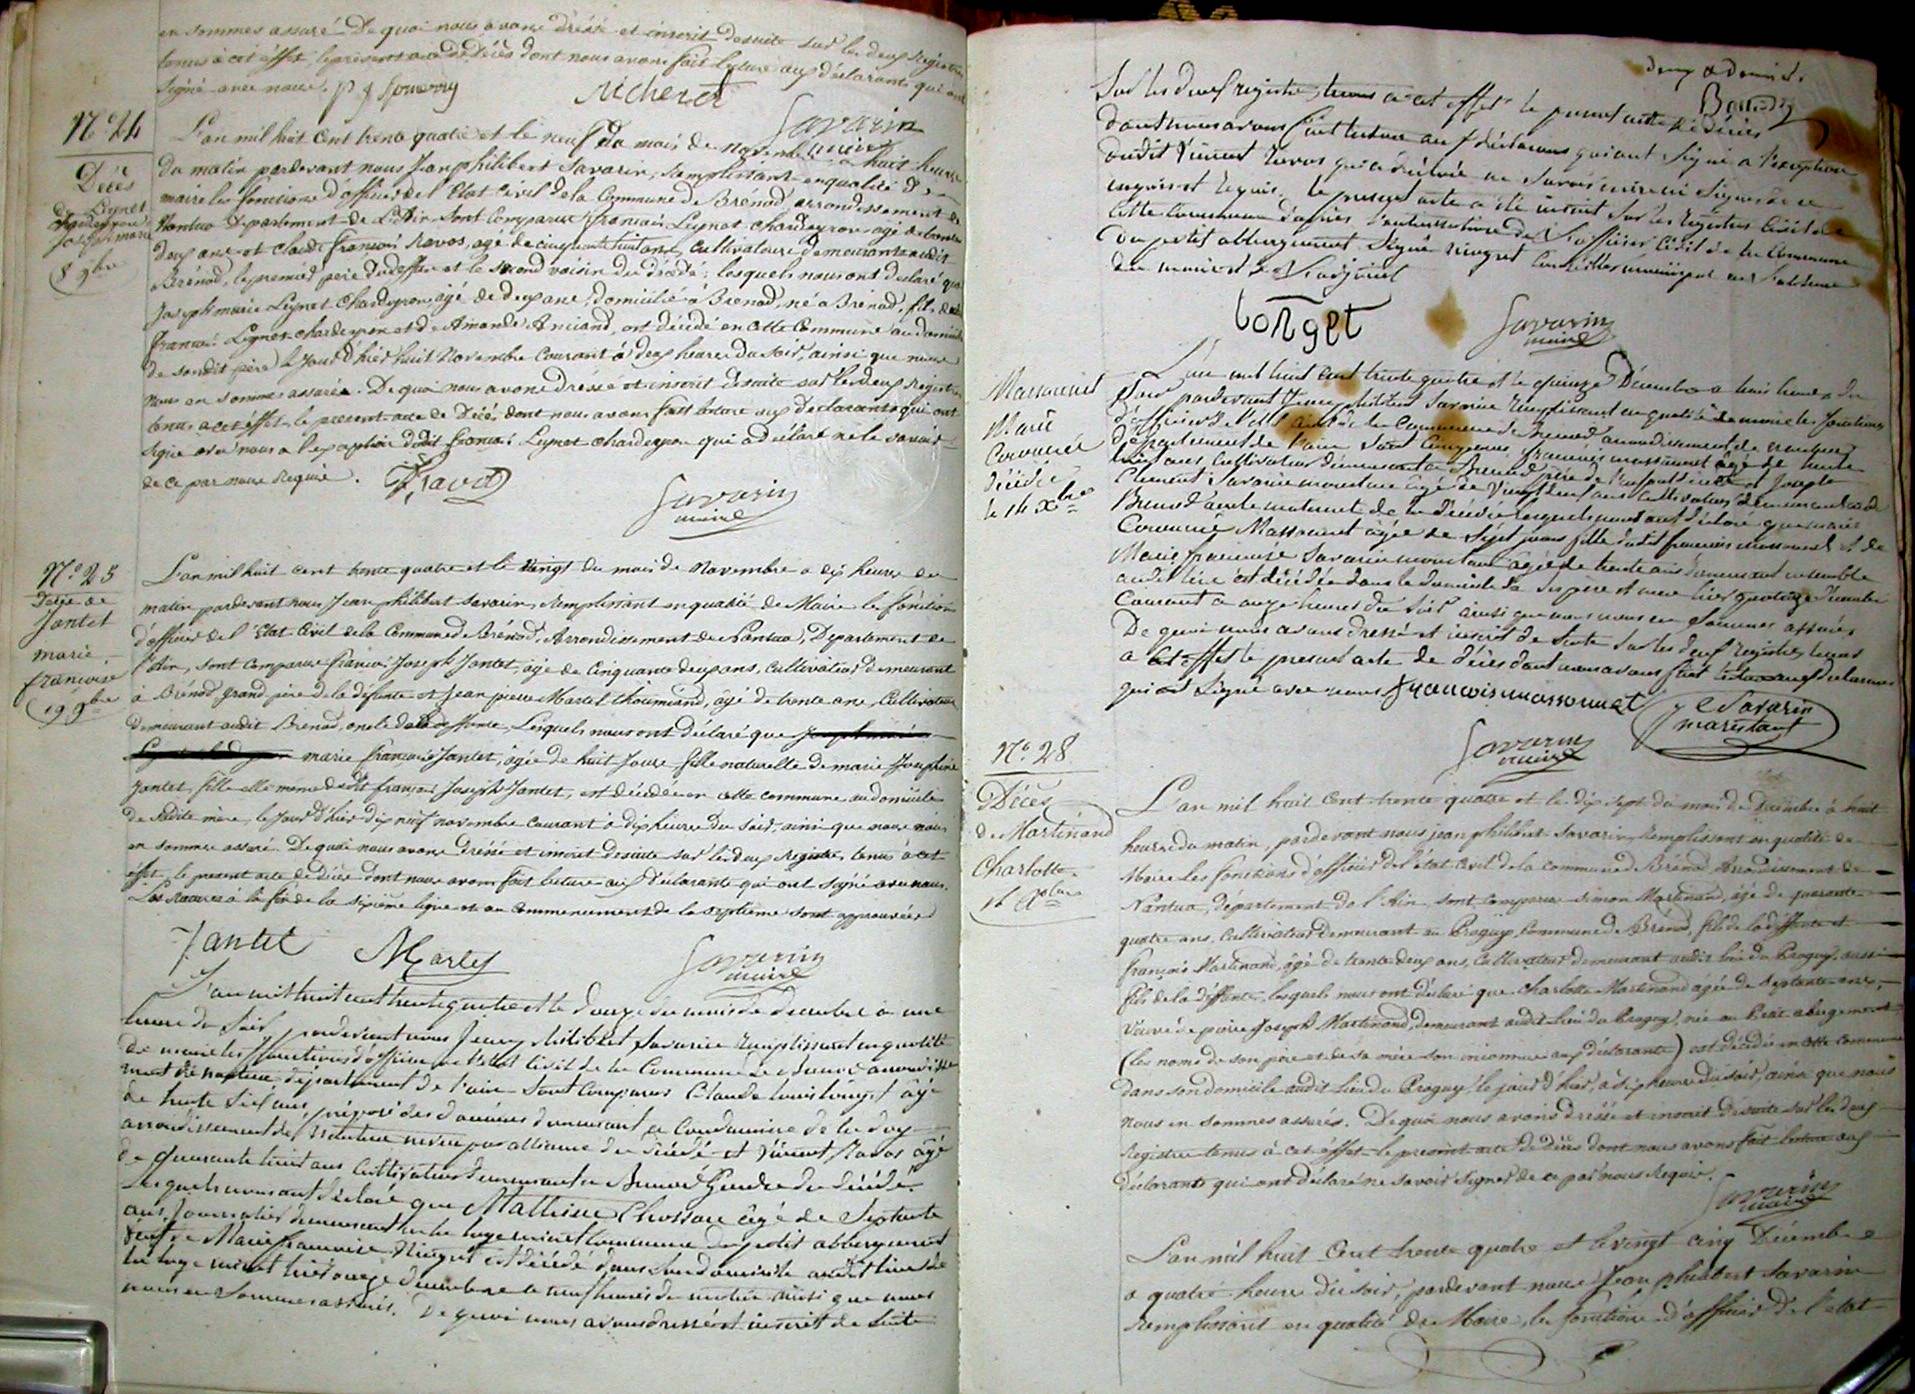 en sommes assuré. De quoi nous avons dressé et inscrit desuite sur les deux Registres
tenus à cet effet, le présent acte de Décès dont nous avons fait lecture aux déclarants qui ont
signé avec nous.
Savarin
maire
N° 24
Décès
de Leynet
chardeyron
Joseph marie
8 9bre
L'an mil huit cent trente quatre et le neuf du mois de novembre à huit heures
du matin pardevant nous Jean philibert Savarin, Remplissant en qualité de
maire les fonctions d'officier de l'Etat Civil de la Commune de Brénod, arrondissement de
Nantua Département de L'Ain Sont Comparus françois Leynet chardeyron agé de trente
deux ans et claude françois Ravos, agé de cinquante huit ans, Cultivateurs demeurants audit
Brénod, le premier père du deffun et le second voisin du décédé; lesquels nous ont declaré que
Joseph marie Leynet chardeyron, âgé de deux ans, domicilié à Brénod, né à Brénod, fils de
françois Leynet chardeyron et de Amande Anciand, ont décédé en cette Commune au domicile
de sondit père le Jour d'hier huit Novembre Courant à deux heures du soir, ainsi que nous
nous en sommes assurés. De quoi nous avons dressé et inscrit desuite sur les deux Registres
tenus a cet effet, le present acte de Décés, dont nous avons fait lecture aux déclarants qui ont
signé avec nous a l'exception dudit françois Leynet chardeyron qui a déclaré ne le savoir
de ce par nous Requis.
Ravos
Savarin
maire
N° 25
Décès de
Jantet
marie
françoise
19 9bre
L'an mil huit cent trente quatre et le vingt du mois de Novembre a dix heures du
matin pardevant nous Jean philibert Savarin, Remplissant en qualité de Maire les fonctions
d'officier de l'Etat Civil de la Commune de Brénod, Arrondissement de Nantua, Département de
l'Ain, sont comparus françois Joseph Jantet, âgé de Cinquante deux ans, Cultivateur demeurant
à Brénod, grand père de la défunte et Jean pierre Martel thoumiand, âgé de trente ans, Cultivateur
demeurant audit Brénod, oncle de la deffunte, Lesquels nous ont déclaré que
marie françoise Jantet, âgée de huit Jours fille naturelle de marie Josephine
Jantet, fille elle même dudit françois Joseph Jantet, est décédée en cette commune au domicile
de sadite mère, le Jour d'hier dix neuf novembre courant à dix heures du soir, ainsi que nous nous
en sommes assuré. De quoi nous avons dressé et inscrit desuite sur les deux Registres tenus à cet
effet, le présent acte de décès dont nous avons fait lecture aux Déclarants qui ont signé avec nous.
Les Ratures à la fin de la sixième ligne et au commencement de la septième sont approuvées
Jantet Martel Savarin
maire
L'an mil huit cent trente quatre et le douze du mois de decembre à une
heure du Soir, pardevant nous Jean philibert Savarin Remplissant en qualité
de maire les fonctions d'officier de l'etat Civil de la Commune de Brénod arrondisse
ment de nantua département de l'ain Sont Comparus Claude Louis Longet âgé
de trente Six ans, préposé des douanes demeurant a
arrondissement de Nantua neveu par alliance du Décédé et Vincent Ravos âgé
de quarante huit ans Cultivateur demeurant a Brenod Gendre du Décédé.
Lesquels nous ont déclaré que Mathieu Chossau âgé de Septante
ans Journalier demeurant
de Marie françoise Ninguet est décédé dans Son domicile audit lieu de
hier onze decembre a neuf heures du matin ainsi que nous
nous en Sommes assurés. De quoi nous avons dressé et inscrit de Suite
Sur les deux registres tenus a cet effet le present acte de décès
dont nous avons fait lecture aux déclarans qui ont Signé a l'exception
dudit Vincent Ravos qui a déclaré ne Savoir écrire ni Signer de ce
enquis et Requis. Le present acte a été inscrit Sur les Registres Civil de
Cette Commune d'après l'autorisation de l'officier Civil de la Commune
du petit abbergement Signé Ninguet Conseiller municipal en l'absence
du maire et de l'adjoint
Longet
Savarin
maire
Massonnet
Marie
décédée
le 14 Xbre
L'an mil huit cent trente quatre et le quinze Décembre a trois heures du
Soir pardevant Jean philibert Savarin Remplissant en qualité de maire les fonctions
d'officier de l'etat Civil de la Commune de Brénod arrondissement de nantua
département de l'ain Sont Comparus françois massonnet âgé de trente
huit ans Cultivateur demeurant a Brenod père de l'enfant décédé et Joseph
Clément Savarin marestant âgé de Vingt Sept ans Cultivateur demeurant audit
Brenod oncle maternel de la Décédée lesquels nous ont déclaré que marie
Massonnet âgée de Sept jours fille dudit françois massonnet et de
Marie françoise Savarin marestant âgée de trente ans demeurant ensemble
audit lieu est décédée dans le domicile de Ses père et mere hier quatorze Decembre
Courant a onze heures du Soir ainsi que nous nous en Sommes assurés
De quoi nous avons dressé et inscrit de Suite Sur les deux Registres tenus
a Cet effet le present acte de décès dont nous avons fait lecture aux declarans
qui ont Signé avec nous françois massonnet
J C Savarin
marestant
Savarin
maire
N° 28
Décès
de Martinand
Charlotte
16 Xbre
L'an mil huit Cent trente quatre et le dix sept du mois de Décembre à huit
heures du matin, pardevant nous jean philibert Savarin, Remplissant en qualité de
Maire les fonctions d'officier de l'état Civil de la commune de Brénod Arrondissement de
Nantua, département de l'Ain, sont comparus simon Martinand, âgé de quarante
quatre ans, Cultivateur demeurant au Proguy, Commune de Brénod, fils de la deffunte et
françois Martinand, âgé de trente deux ans, Cultivateur demeurant audit lieu du Proguy, aussi
fils de la deffunte, lesquels nous ont déclaré que charlotte Martinand agée de Septante ans,
Veuve de pierre Joseph Martinand, demeurant audit Lieu du Proguy, née au Petit abergement
(les noms de son père et de sa mère son inconnus aux déclarants) est décédée en cette commune
dans son domicile audit lieu du Proguy, le jour d'hier, à six heures du soir, ainsi que nous
nous en sommes assurés. De quoi nous avons dressé et inscrit desuite sur les deux
Registres tenus à cet effet le présent acte de Décès dont nous avons fait lecture aux
déclarants qui ont déclaré ne savoir signer de ce par nous Requis.
Savarin
maire
L'an mil huit Cent trente quatre et le vingt cinq Décembre
a quatre heures du soir, pardevant nous Jean philibert Savarin
Remplissant en qualité de Maire, les fonctions d'officier de l'etat